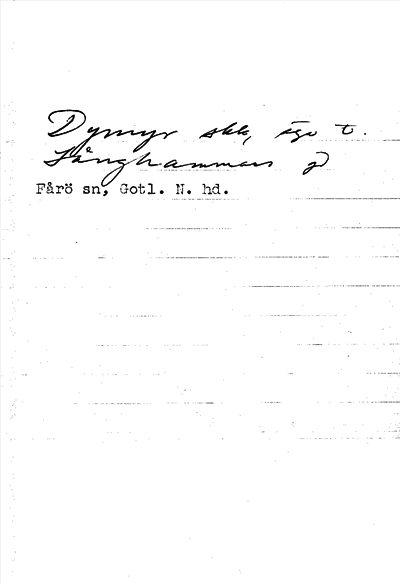 Dymyr skk, äga t.
Långhammars g
Fårö sn, Gotl. N. hd.